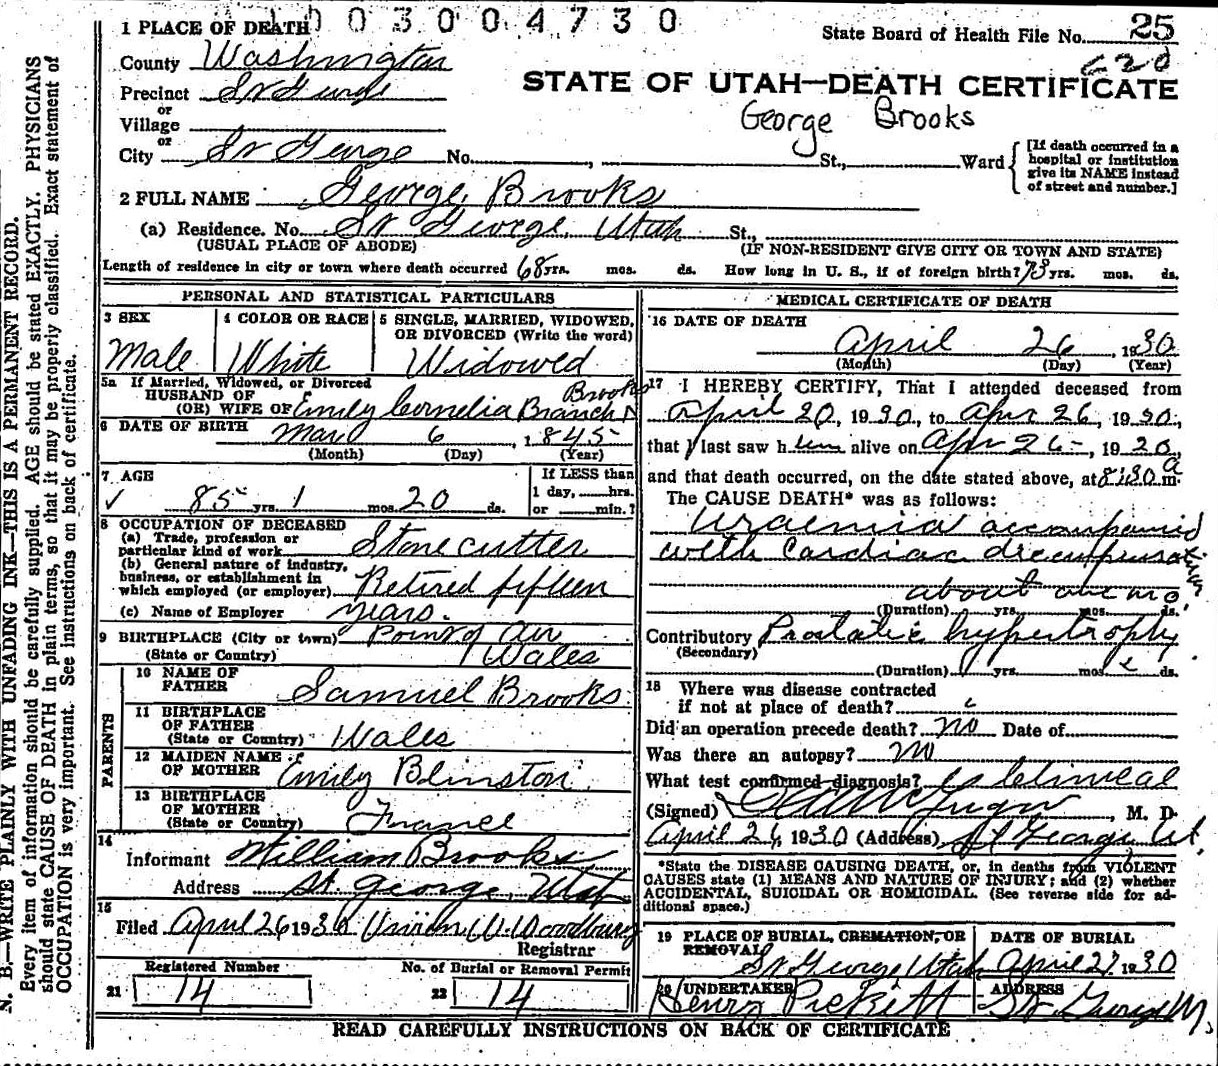 003004730
1 PLACE OF DEATH
State Board of Health File No. 25
County Washington
620
Precinct St George
STATE OF UTAH—DEATH CERTIFICATE
or
Village
George Brooks
or
City St George No. , St., Ward
[If death occurred in a
hospital or institution
give its NAME instead
of street and number.]
2 FULL NAME George Brooks
(a) Residence. No. St George, Utah St.,
(USUAL PLACE OF ABODE) (IF NON-RESIDENT GIVE CITY OR TOWN AND STATE)
Length of residence in city or town where death occurred 68 yrs. mos. ds. How long in U. S., if of foreign birth? 73 yrs. mos. ds.
PERSONAL AND STATISTICAL PARTICULARS
3 SEX
Male
4 COLOR OR RACE
White
5 SINGLE, MARRIED, WIDOWED,
OR DIVORCED (Write the word)
Widowed
5a If Married, Widowed, or Divorced
HUSBAND OF
(OR) WIFE OF Emily Cornelia Branch Brooks
6 DATE OF BIRTH Mar 6, 1845
(Month) (Day) (Year)
7 AGE
✓ 85 yrs. 1 mos. 20 ds.
If LESS than
1 day, hrs.
or min.?
8 OCCUPATION OF DECEASED
(a) Trade, profession or
particular kind of work Stone cutter
(b) General nature of industry,
business, or establishment in
which employed (or employer) Retired fifteen
(c) Name of Employer years.
9 BIRTHPLACE (City or town) Point of Air
(State or Country) Wales
PARENTS
10 NAME OF
FATHER Samuel Brooks
11 BIRTHPLACE
OF FATHER
(State or Country) Wales
12 MAIDEN NAME
OF MOTHER Emily Blinston
13 BIRTHPLACE
OF MOTHER
(State or Country) France
14
Informant William Brooks
Address St. George, Utah
15
Filed April 26 1930 Woodbury
Registrar
Registered Number
21 14
No. of Burial or Removal Permit
22 14
MEDICAL CERTIFICATE OF DEATH
16 DATE OF DEATH
April 26, 1930
(Month) (Day) (Year)
17 I HEREBY CERTIFY, That I attended deceased from
April 20, 1930, to Apr 26, 1930,
that I last saw him alive on Apr 26, 1930,
and that death occurred, on the date stated above, at 8:30 a m.
The CAUSE DEATH* was as follows:
Uraemia accompanied
with Cardiac decompensation
about one mo
(Duration) yrs. mos. ds.
Contributory Prostatic hypertrophy
(Secondary)
(Duration) yrs. mos. ds.
18 Where was disease contracted
if not at place of death?
Did an operation precede death? no Date of
Was there an autopsy? no
What test confirmed diagnosis? Clinical
(Signed) McGregor, M. D.
April 26, 1930 (Address) St George, Ut.
*State the DISEASE CAUSING DEATH, or, in deaths from VIOLENT
CAUSES state (1) MEANS AND NATURE OF INJURY; and (2) whether
ACCIDENTAL, SUICIDAL OR HOMICIDAL. (See reverse side for ad-
ditional space.)
19 PLACE OF BURIAL, CREMATION, OR
REMOVAL
St George Utah
DATE OF BURIAL
April 27, 1930
20 UNDERTAKER
Henry Pickett
ADDRESS
St. George
READ CAREFULLY INSTRUCTIONS ON BACK OF CERTIFICATE
N. B.—WRITE PLAINLY WITH UNFADING INK—THIS IS A PERMANENT RECORD.
Every item of information should be carefully supplied. AGE should be stated EXACTLY. PHYSICIANS
should state CAUSE OF DEATH in plain terms, so that it may be properly classified. Exact statement of
OCCUPATION is very important. See instructions on back of certificate.